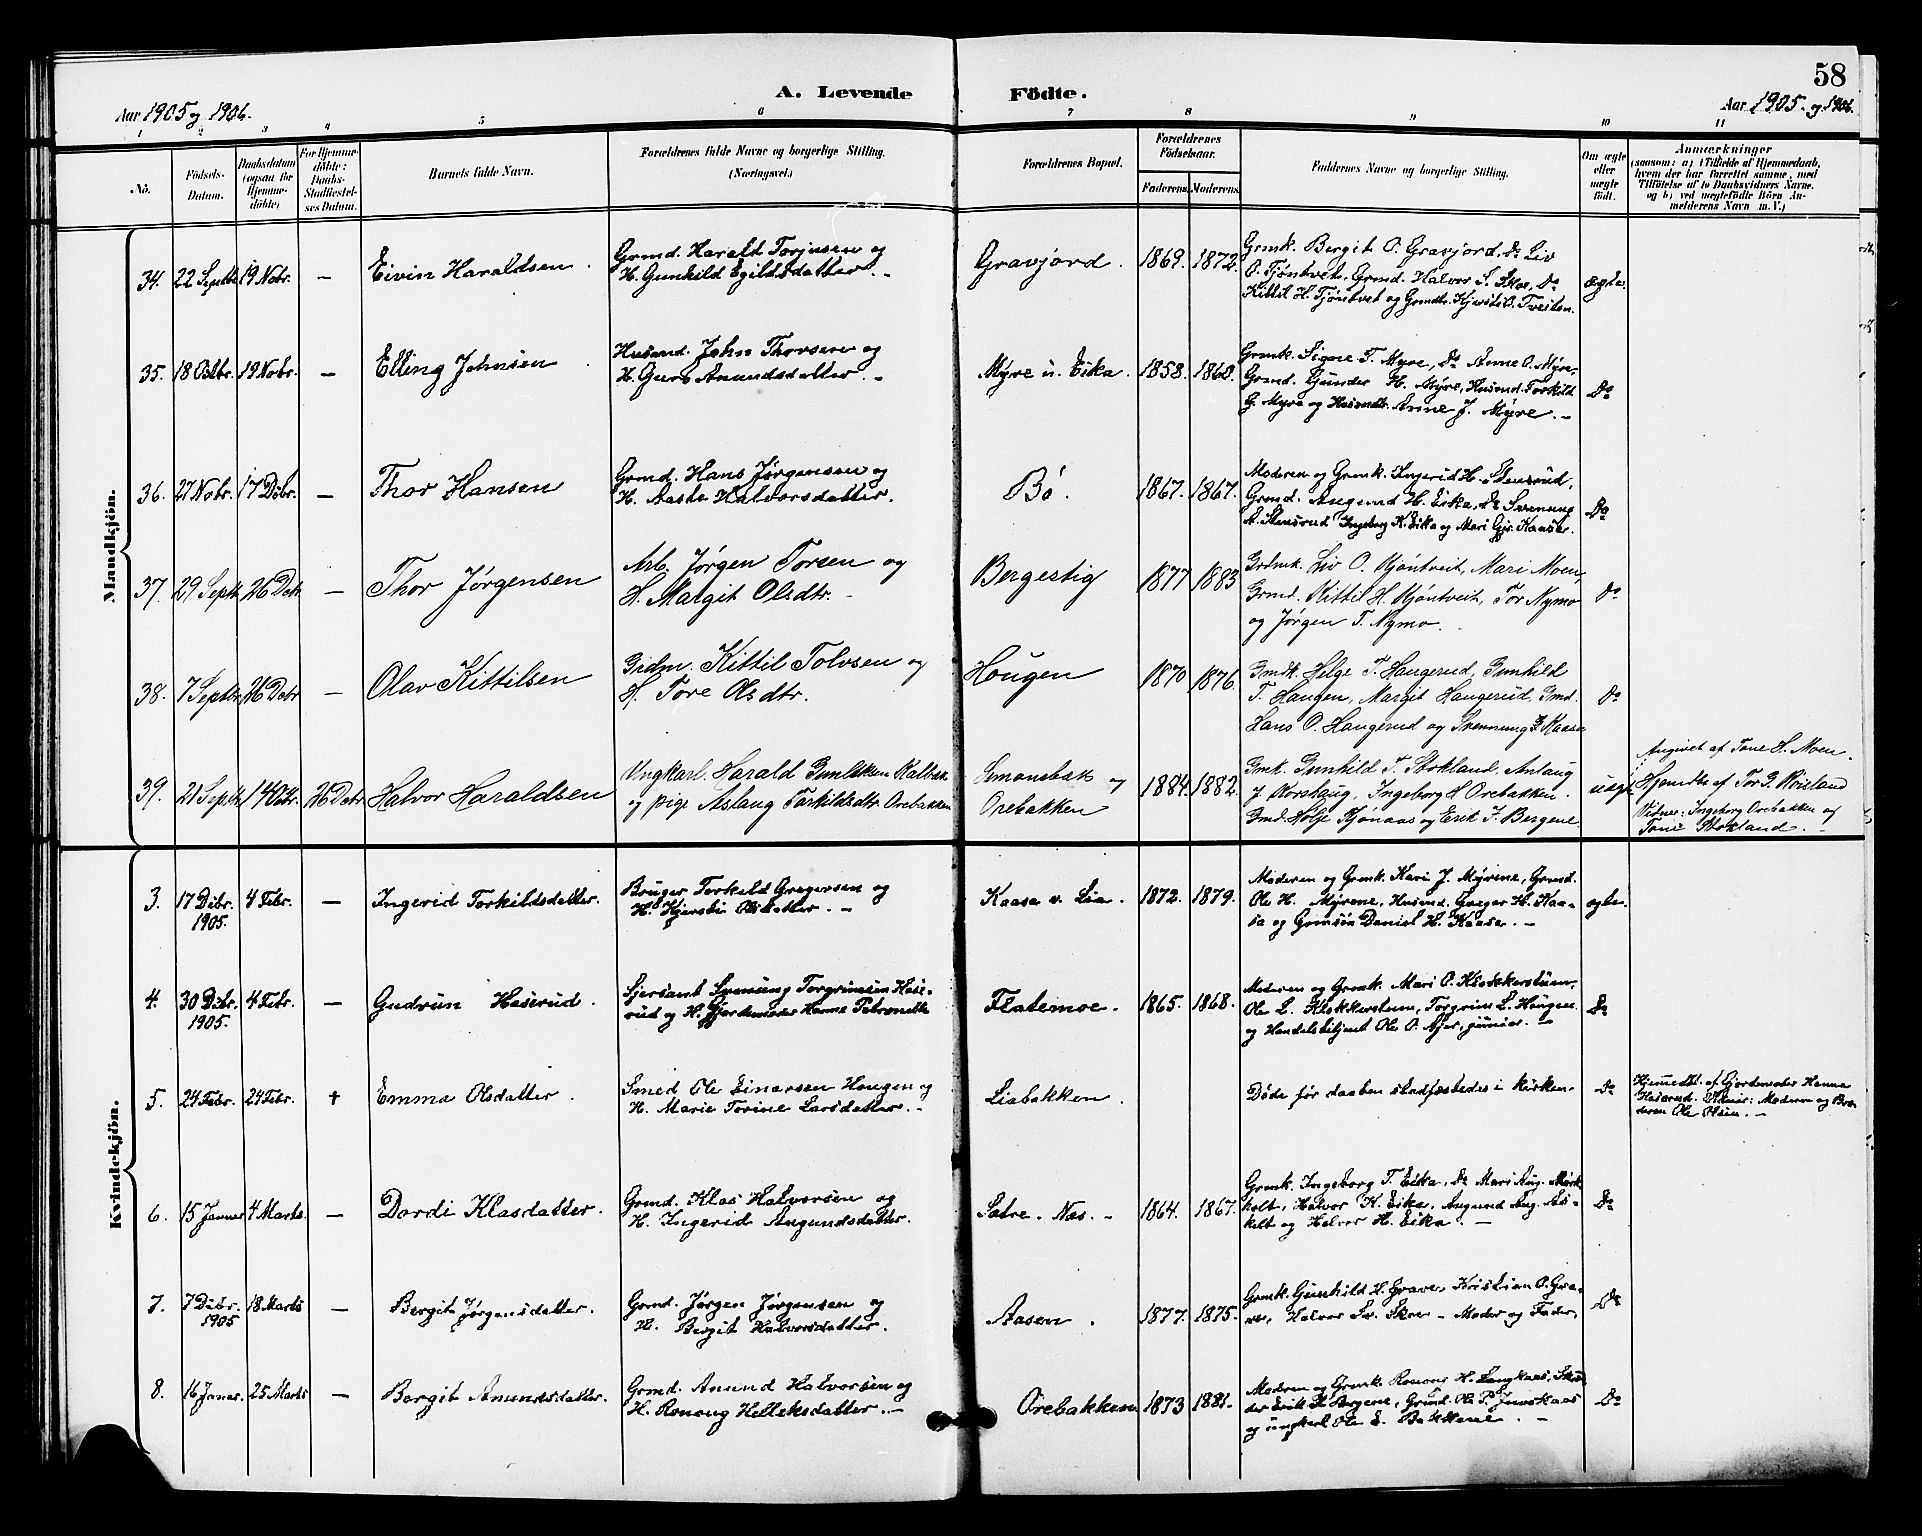 58
A. Levende Födte.
Aar 1905 og 1906.
Aar 1905. og 1906.
1 2 3 4 5 6 7 8 9 10 11
No.
Födsels-Datum.
Daabsdatum (ogsaa for Hjemmedöbte)
For Hjemmedöbte: Daabs-Stadfæstelses Datum.
Barnets fulde Navn.
Forældrenes fulde Navne og borgerlige Stilling. (Næringsvei.)
Forældrenes Bopæl.
Forældrenes Födselsaar.
Faderens. Moderens.
Faddernes Navne og borgerlige Stilling.
Om ægte eller uægte födt.
Anmærkninger
(saasom: a) i Tilfælde af Hjemmedaab,
hvem der har forrettet samme, med
Tilföielse af to Daabsvidners Navne,
og b) ved uægtefödte Börn An-
melderens Navn m. V.)
Mandkjön.
34. 22 Septbr. 19 Nobr. — Eivin Haraldsen.
Grmd. Harald Torjusen og
H. Gunhild Egildsdatter. -
Gravjord. 1869. 1872.
Grmk. Bergit O. Gravjord, Do Liv
O. Tjöntvet, Grmd. Halvor S. Skoe, Do
Kittil H. Tjöntvet og Grmdtr. Kjersti O. Tveiten.
ægte.
35. 18 Oktbr. 19 Nobr. — Elling Johnsen
Husmd. John Thovsen og
H. Guro Amundsdatter. -
Myre u. Eika. 1858. 1868.
Grmk. Signe T. Myre, Do Anne O. Myre,
Grmd. Gunder H. Myre, Husmd. Torkild
G. Myre og Husmdtr. Anne J. Myre. -
Do
36. 27 Nobr. 17 Debr. — Thor Hansen
Grmd. Hans Jørgensen og
H. Aaste Halvorsdatter.
Bö. 1867. 1867.
Moderen og Grmk. Ingerid H. Stensrud,
Grmd. Angund H. Eika, Do Svenung
A. Stensrud Ingeborg K. Eika og Mari Gjr. Kaasa.
Do
37. 29 Septbr. 26 Debr. — Thor Jørgensen
Arb. Jørgen Torsen og
H. Margit Olsdtr.
Bergestig 1877 1883
Grdmk. Liv O. Kjöntveit, Mari Moen,
Grmd. Kittil H. Kjöntveit, Tor Nymo
og Jørgen T. Nymo.
Do
38. 7 Septbr. 26 Debr — Olav Kittilsen
Grdm. Kittil Tolvsen og
H. Tore Olsdtr.
Hougen 1870 1876.
Gmdk. Helge T. Haugerud, Gunhild
T. Haugen, Margit Haugerud, Gmd.
Hans O. Haugerud og Svennung Kaasa
Do
39. 21 Septbr. 14 Oktbr. 26 Debr Halvor Haraldsen
Ungkarl. Harald
og pige Aslaug Torkildsdtr. Orebakken
Simonsbæk og
Orebakken
1884. 1882.
Gmk. Gunhild T. Stokland, Anlaug
J. Korshaug, Ingeborg H. Orebakken.
Gmd. Holje Kjönaas og Erik J. Bergene.
uægte
Angivet af Tone H. Moen.
Hjemdt af Tor G. Röisland
Vidner: Ingeborg Orebakken og
Tone Stokland. -
Kvindekjön.
3. 17 Debr. 1905. 4 Febr. — Ingerid Torkildsdatter.
Bruger Torkild Gregersen og
H. Kjersti Olsdatter. -
Kaasa v. Lia. 1872. 1879.
Moderen og Grmk. Kari J. Myrene, Grmd.
Ole H. Myrene, Husmd. Greger H. Kaa-
sa og Grmsön Daniel H. Kaasa. -
ægte.
4. 30 Debr. 1905. 4 Febr. — Gudrun Haserud.
Sjersant Svenung Torgrimsen Hase-
rud og H. Gjordemoder Hanna Petronelle
Flatemoe. 1865. 1868.
Moderen og Grmk. Mari O. Klokkerstuen,
Ole L. Klokkerstuen, Torgrim L. Haugen
og Handelsbetjent Ole O. Ajer, junior. -
Do
5. 24 Febr. 24 Febr. + Emma Olsdatter.
Smed Ole Einarsen Haugen og
H. Marie Torine Larsdatter. -
Liabakken.
Døde før daaben stadfæstedes i kirken.
Do
Hjemmedbt. af Gjordemoder Hanna
Haserud. Vidner: Moderen og Bro-
deren Ole Olsen. -
6. 15 Januar 4 Marts. — Dordi Klasdatter.
Grmd. Klas Halvorsen og
H. Ingerid Angundsdatter.
Satre. Nas. - 1864. 1867.
Grmk. Ingeborg T. Eika, Do Mari Aug. Mørk-
holt, Halvor K. Eika, Angund Aug. Aas-
helt og Halvor H. Eika. -
Do
7. 7 Debr. 1905 18 Marts — Bergit Jørgensdatter.
Grmd. Jørgen Jørgensen og
H. Bergit Halvorsdatter.
Aasen. 1877. 1875.
Grmk. Gunhild H. Grave, Kristian O. Gra-
ve, Halvor Sv. Skoe - Moder og Fader.
Do
8. 16 Januar. 25 Marts — Bergit Amundsdatter.
Grmd. Amund Halvorsen og
H. Ronaug Helleksdatter. -
Orebakken 1873 1881.
Moderen og Grmk. Ronoug H. Langkaas,
Erik J. Bergene, Grmd. Ole P. Juvskaas
og ungkarl Ole E. Bakkene. -
Do